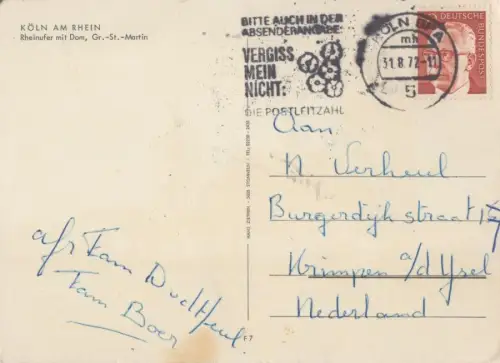 KÖLN AM RHEIN
Rheinufer mit Dom, Gr.-St.-Martin
BITTE AUCH IN DER
ABSENDERANGABE:
VERGISS
MEIN
NICHT:
DIE POSTLEITZAHL
KÖLN
mk
31.8.72-11
5
DEUTSCHE
BUNDESPOST
Aan
N. Verheul
Burgerdijk straat
Krimpen a/d Ysel
Nederland
afz Fam
Fam Boer